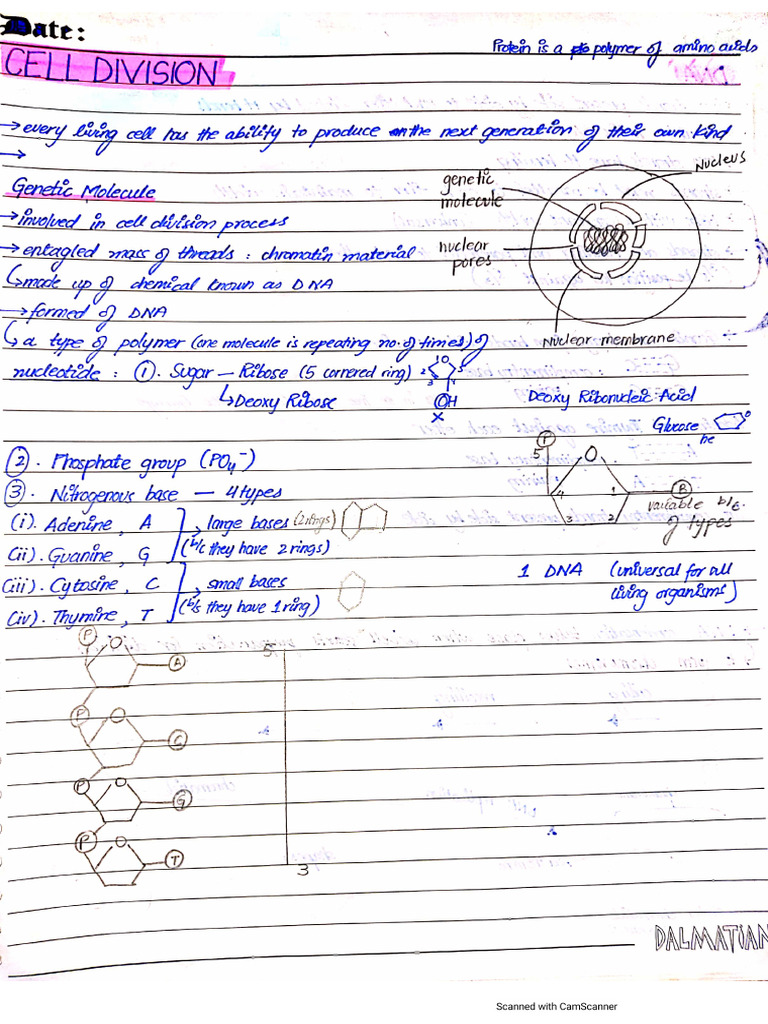 Date:
Protein is a polymer of amino acids
CELL DIVISION
DNA
→ every living cell has the ability to produce the next generation of their own kind
→
Genetic Molecule
→ involved in cell division process
→ entagled mass of threads : chromatin material
↳ made up of chemical known as DNA
→ formed of DNA
↳ a type of polymer (one molecule is repeating no. of times) of
nucleotide : ①. Sugar — Ribose (5 cornered ring)
↳ Deoxy Ribose
O
2 3 4 5
OH
x
genetic
molecule
nuclear
pores
Nucleus
Nuclear membrane
Deoxy Ribonucleic Acid
Glucose
O
②. Phosphate group (PO4-)
③. Nitrogenous base — 4 types
(i). Adenine, A
(ii). Guanine, G
large bases (2 rings)
(b/c they have 2 rings)
(iii). Cytosine, C
(iv). Thymine, T
small bases
(b/s they have 1 ring)
P
5
O
4 1
3 2
B
variable b/c
of types
1 DNA (universal for all
living organisms)
P O A
P O C
P O G
P O T
5
3
DALMATIAN
Scanned with CamScanner